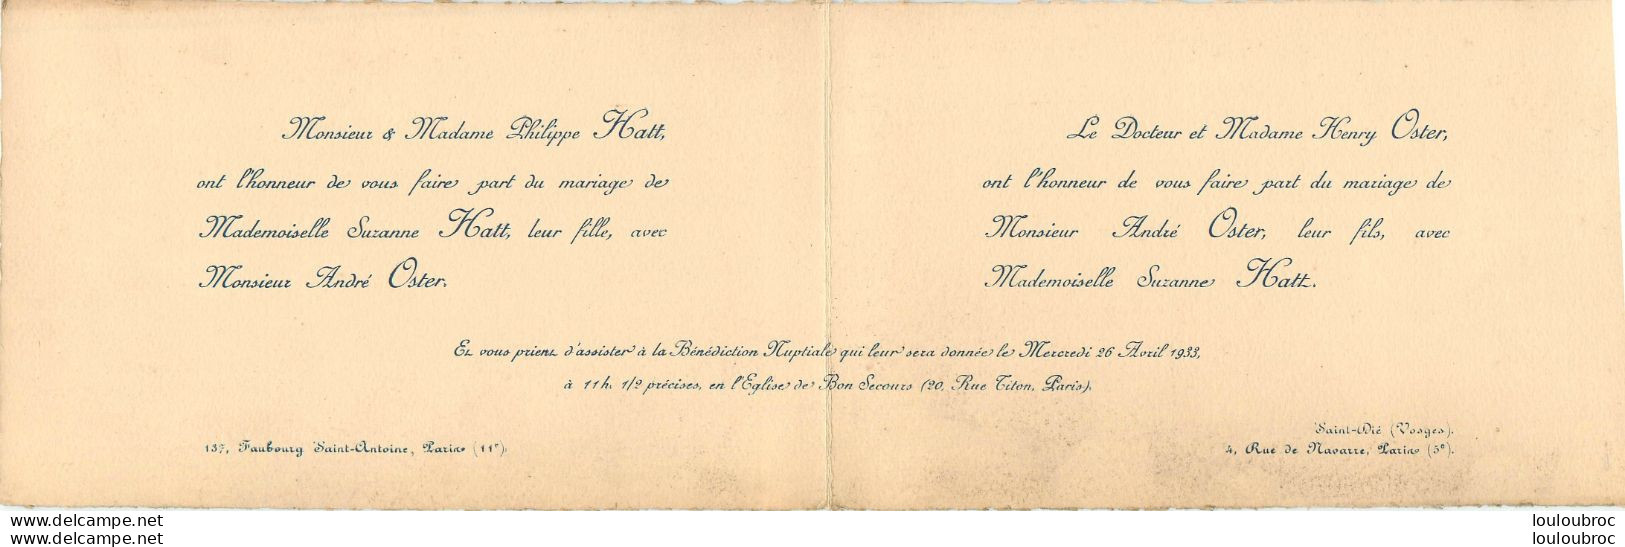 Monsieur & Madame Philippe Hatt,
ont l'honneur de vous faire part du mariage de
Mademoiselle Suzanne Hatt, leur fille, avec
Monsieur André Oster.
Le Docteur et Madame Henry Oster,
ont l'honneur de vous faire part du mariage de
Monsieur André Oster, leur fils, avec
Mademoiselle Suzanne Hatt.
Et vous prient d'assister à la Bénédiction Nuptiale qui leur sera donnée le Mercredi 26 Avril 1933,
à 11 h. 1/2 précises, en l'Eglise de Bon Secours (20, Rue Titon, Paris).
137, Faubourg Saint-Antoine, Paris (11e).
Saint-Dié (Vosges).
4, Rue de Navarre, Paris (5e).
www.delcampe.net
www.delcampe.net
louloubroc
louloubroc